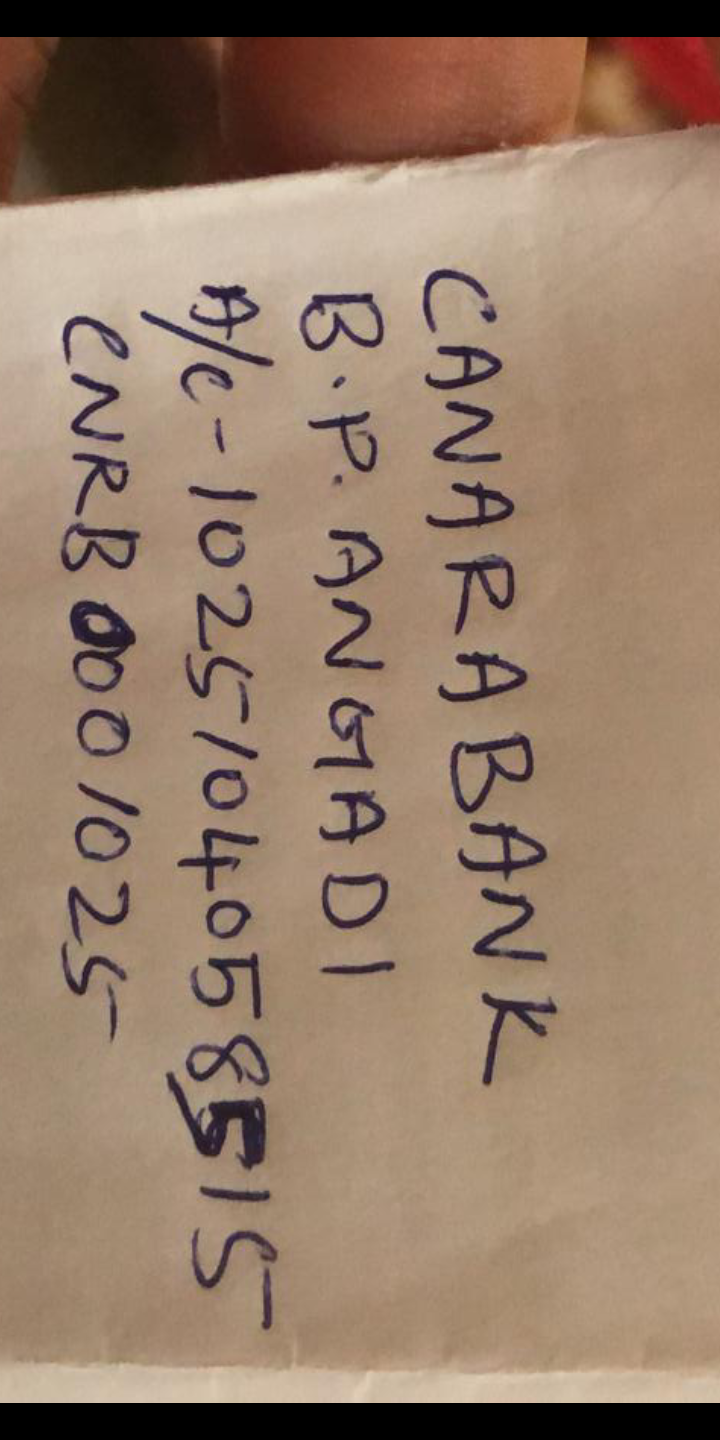 CANARA BANK
B.P. ANGADI
A/c-1025104058515
CNRB0001025